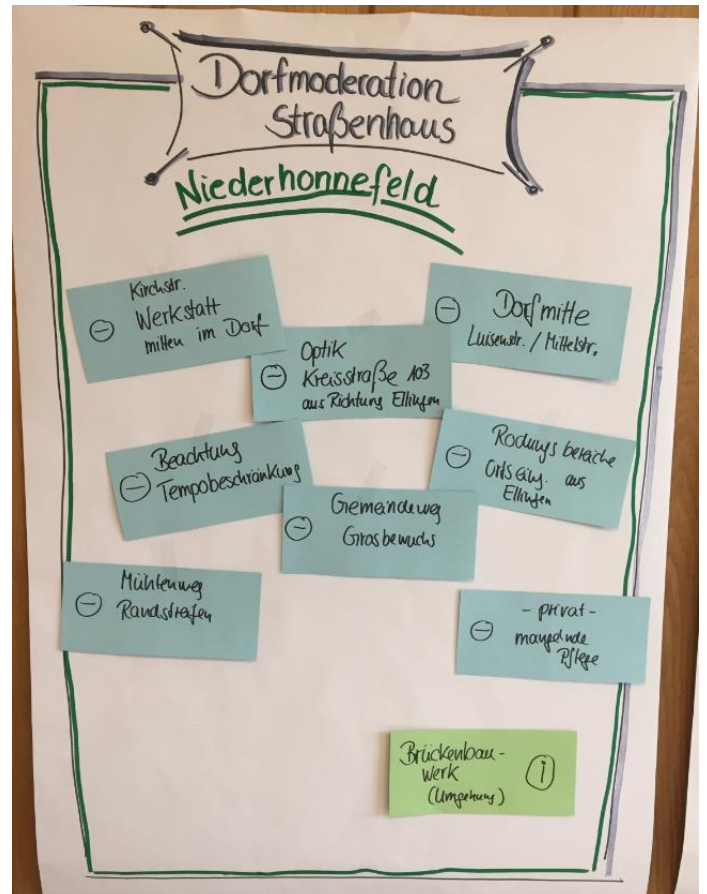 Dorfmoderation
Straßenhaus
Niederhonnefeld
Kirchstr.
⊖ Werkstatt
mitten im Dorf
⊖ Dorfmitte
Luisenstr. / Mittelstr.
Optik
⊖ Kreisstraße 103
aus Richtung Ellingen
Beachtung
⊖ Tempobeschränkung
⊖ Rodungsbereiche
Ortseing. aus
Ellingen
Gemeindeweg
⊖ Grasbewuchs
Mühlenweg
⊖ Randstreifen
- privat -
⊖ mangelnde
Pflege
Brückenbau-
werk ⓘ
(Umgehung)